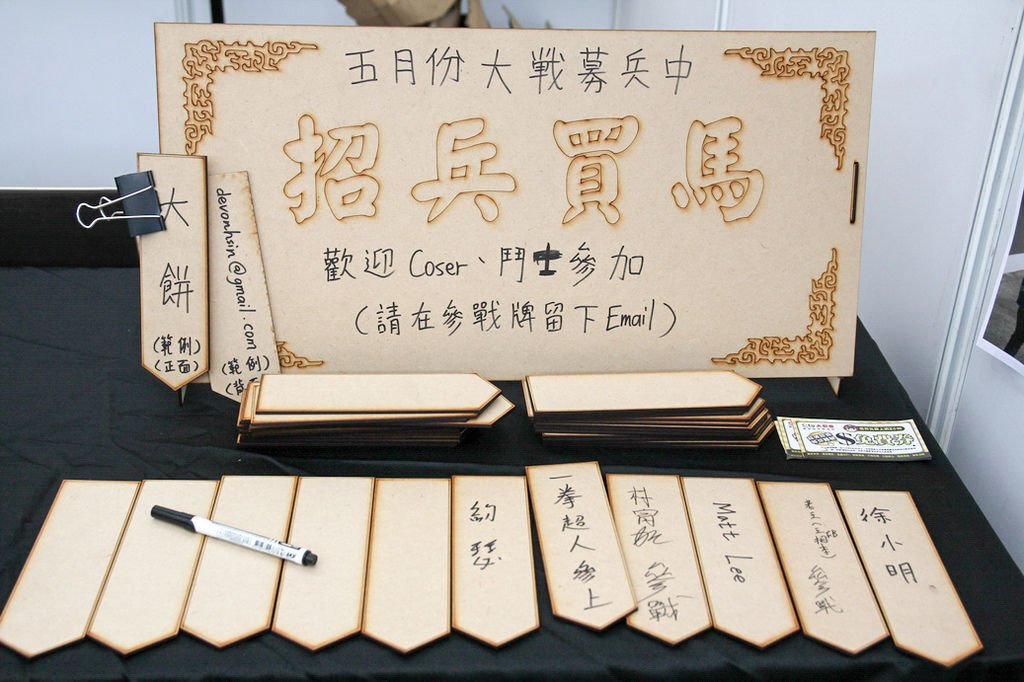 五月份大戰募兵中
招兵買馬
歡迎 Coser、鬥士參加
(請在參戰牌留下 Email)
大餅
(範例)
(正面)
devonhsin@gmail.com
(範例)
一拳超人參上
參戰
Matt Lee
參戰
徐小明